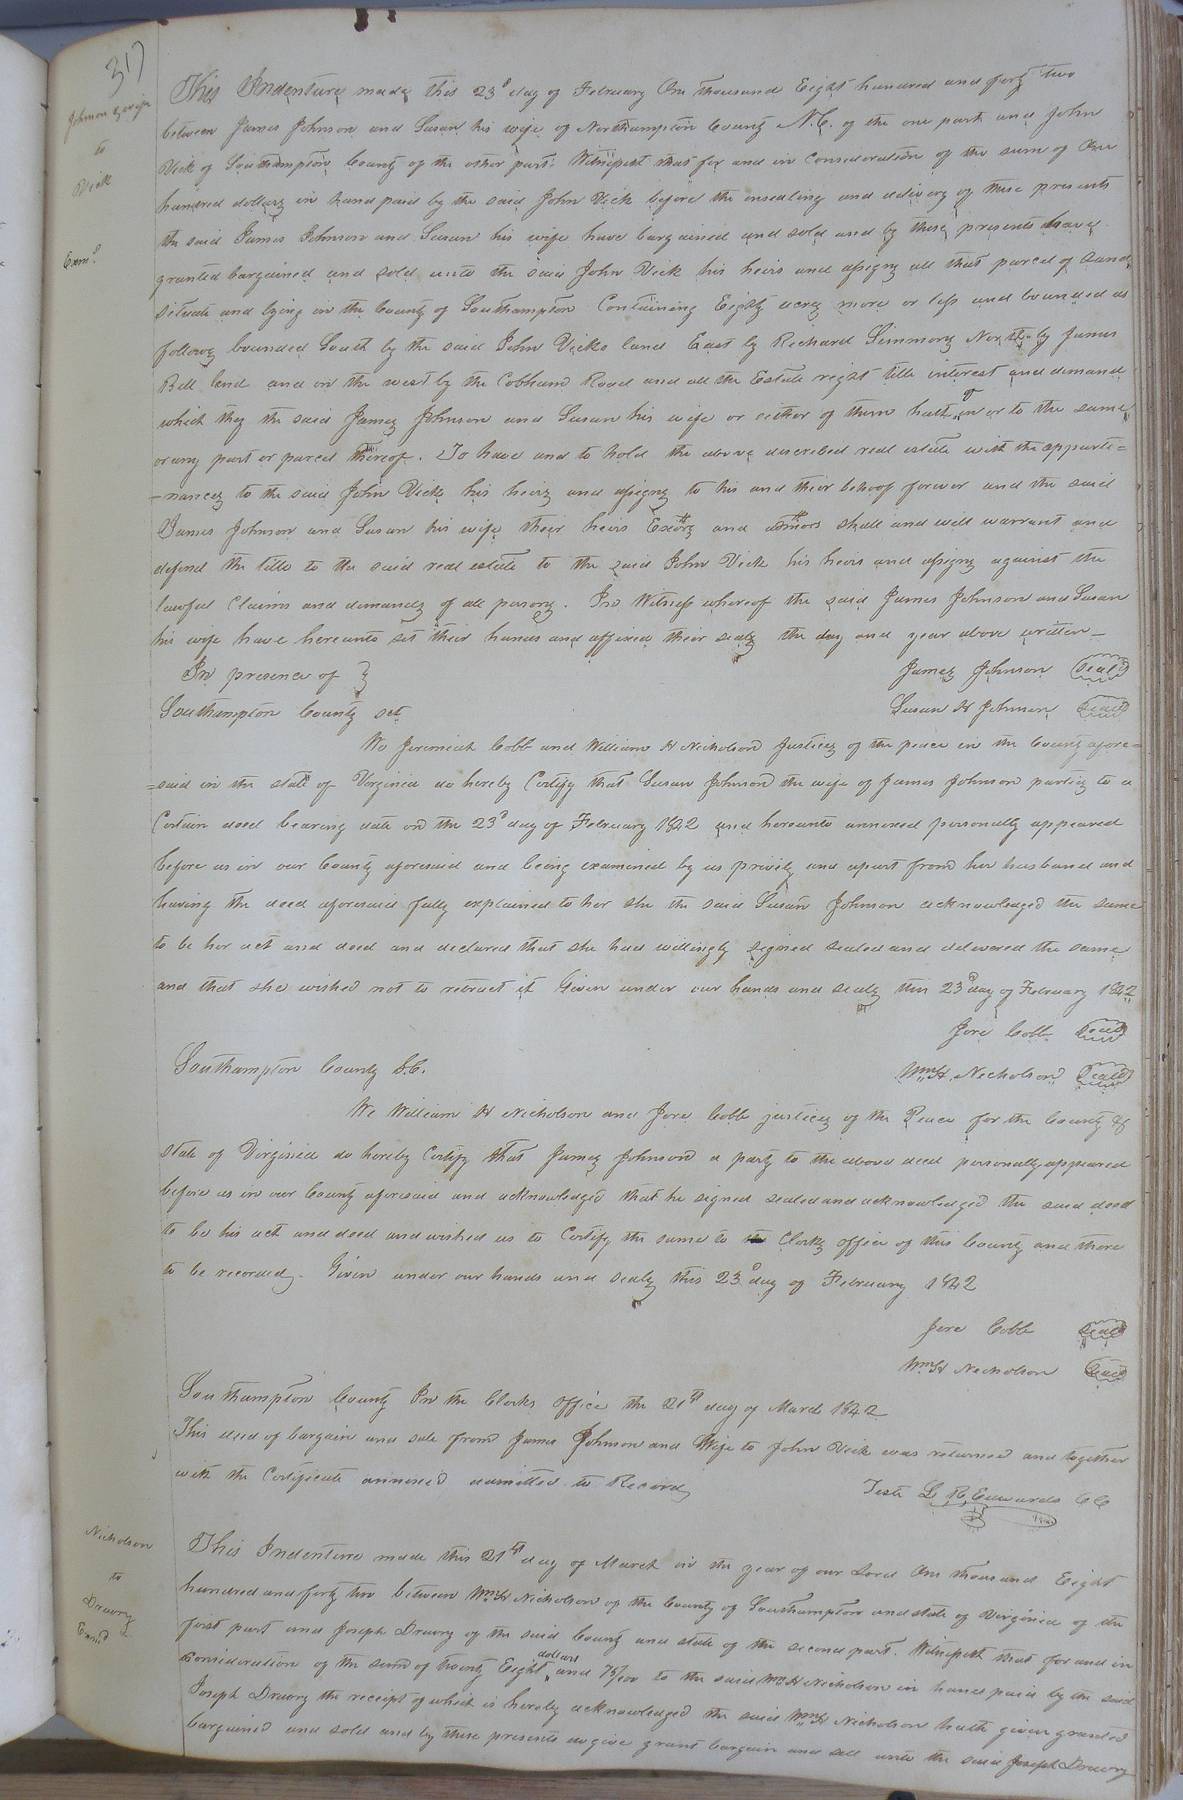 317
Johnson & wife
to
Vick
Exmd
This Indenture made this 23d day of February One thousand Eight hundred and forty two
between James Johnson and Susan his wife of Northampton County N.C. of the one part and John
Vick of Southampton County of the other part: Witnesseth that for and in consideration of the sum of One
hundred dollars in hand paid by the said John Vick before the ensealing and delivery of these presents
the said James Johnson and Susan his wife have bargained and sold and by these presents have
granted bargained and sold unto the said John Vick his heirs and assigns all that parcel of land
situate and lying in the County of Southampton Containing Eighty acres more or less and bounded as
follows bounded South by the said John Vicks land East by Richard Simmons North by James
Bell land and on the west by the Cobham Road and all the Estate right title interest and demand
which they the said James Johnson and Susan his wife or either of them hath of in or to the same
or any part or parcel thereof. To have and to hold the above described real estate with the appurte=
=nances to the said John Vick his heirs and assigns to his and their behoof forever and the said
James Johnson and Susan his wife their heirs Exors and admors shall and will warrant and
defend the title to the said real estate to the said John Vick his heirs and assigns against the
lawful Claims and demands of all persons. In Witness whereof the said James Johnson and Susan
his wife have hereunto set their hands and affixed their seals the day and year above written
In presence of } James Johnson (Seal)
Southampton County sct Susan H Johnson (Seal)
We Jeremiah Cobb and William H Nicholson Justices of the peace in the County afore=
=said in the state of Virginia do hereby Certify that Susan Johnson the wife of James Johnson parties to a
Certain deed bearing date on the 23d day of February 1842 and hereunto annexed personally appeared
before us in our County aforesaid and being examined by us privily and apart from her husband and
having the deed aforesaid fully explained to her she the said Susan Johnson acknowledged the same
to be her act and deed and declared that she had willingly signed sealed and delivered the same
and that she wished not to retract it Given under our hands and seals this 23d day of February 1842
Jere Cobb (Seal)
Southampton County S.C. Wm H. Nicholson (Seal)
We William H Nicholson and Jere Cobb justices of the Peace for the County &
state of Virginia do hereby Certify that James Johnson a party to the above deed personally appeared
before us in our County aforesaid and acknowledged that he signed sealed and acknowledged the said deed
to be his act and deed and wished us to Certify the same to the Clerks office of this County and there
to be recorded. Given under our hands and seals this 23d day of February 1842
Jere Cobb (Seal)
Wm H Nicholson (Seal)
Southampton County In the Clerks office the 21st day of March 1842
This deed of bargain and sale from James Johnson and Wife to John Vick was returned and together
with the Certificate annexed admitted to Record
Teste L R Edwards CC
Nicholson
to
Drewry
Exmd
This Indenture made this 21st day of March in the year of our Lord One thousand Eight
hundred and forty two between Wm H Nicholson of the County of Southampton and state of Virginia of the
first part and Joseph Drewry of the said County and state of the second part. Witnesseth that for and in
consideration of the sum of twenty Eight dollars and 75/100 to the said Wm H Nicholson in hand paid by the said
Joseph Drewry the receipt of which is hereby acknowledged the said Wm H Nicholson hath given granted
bargained and sold and by these presents do give grant bargain and sell unto the said Joseph Drewry